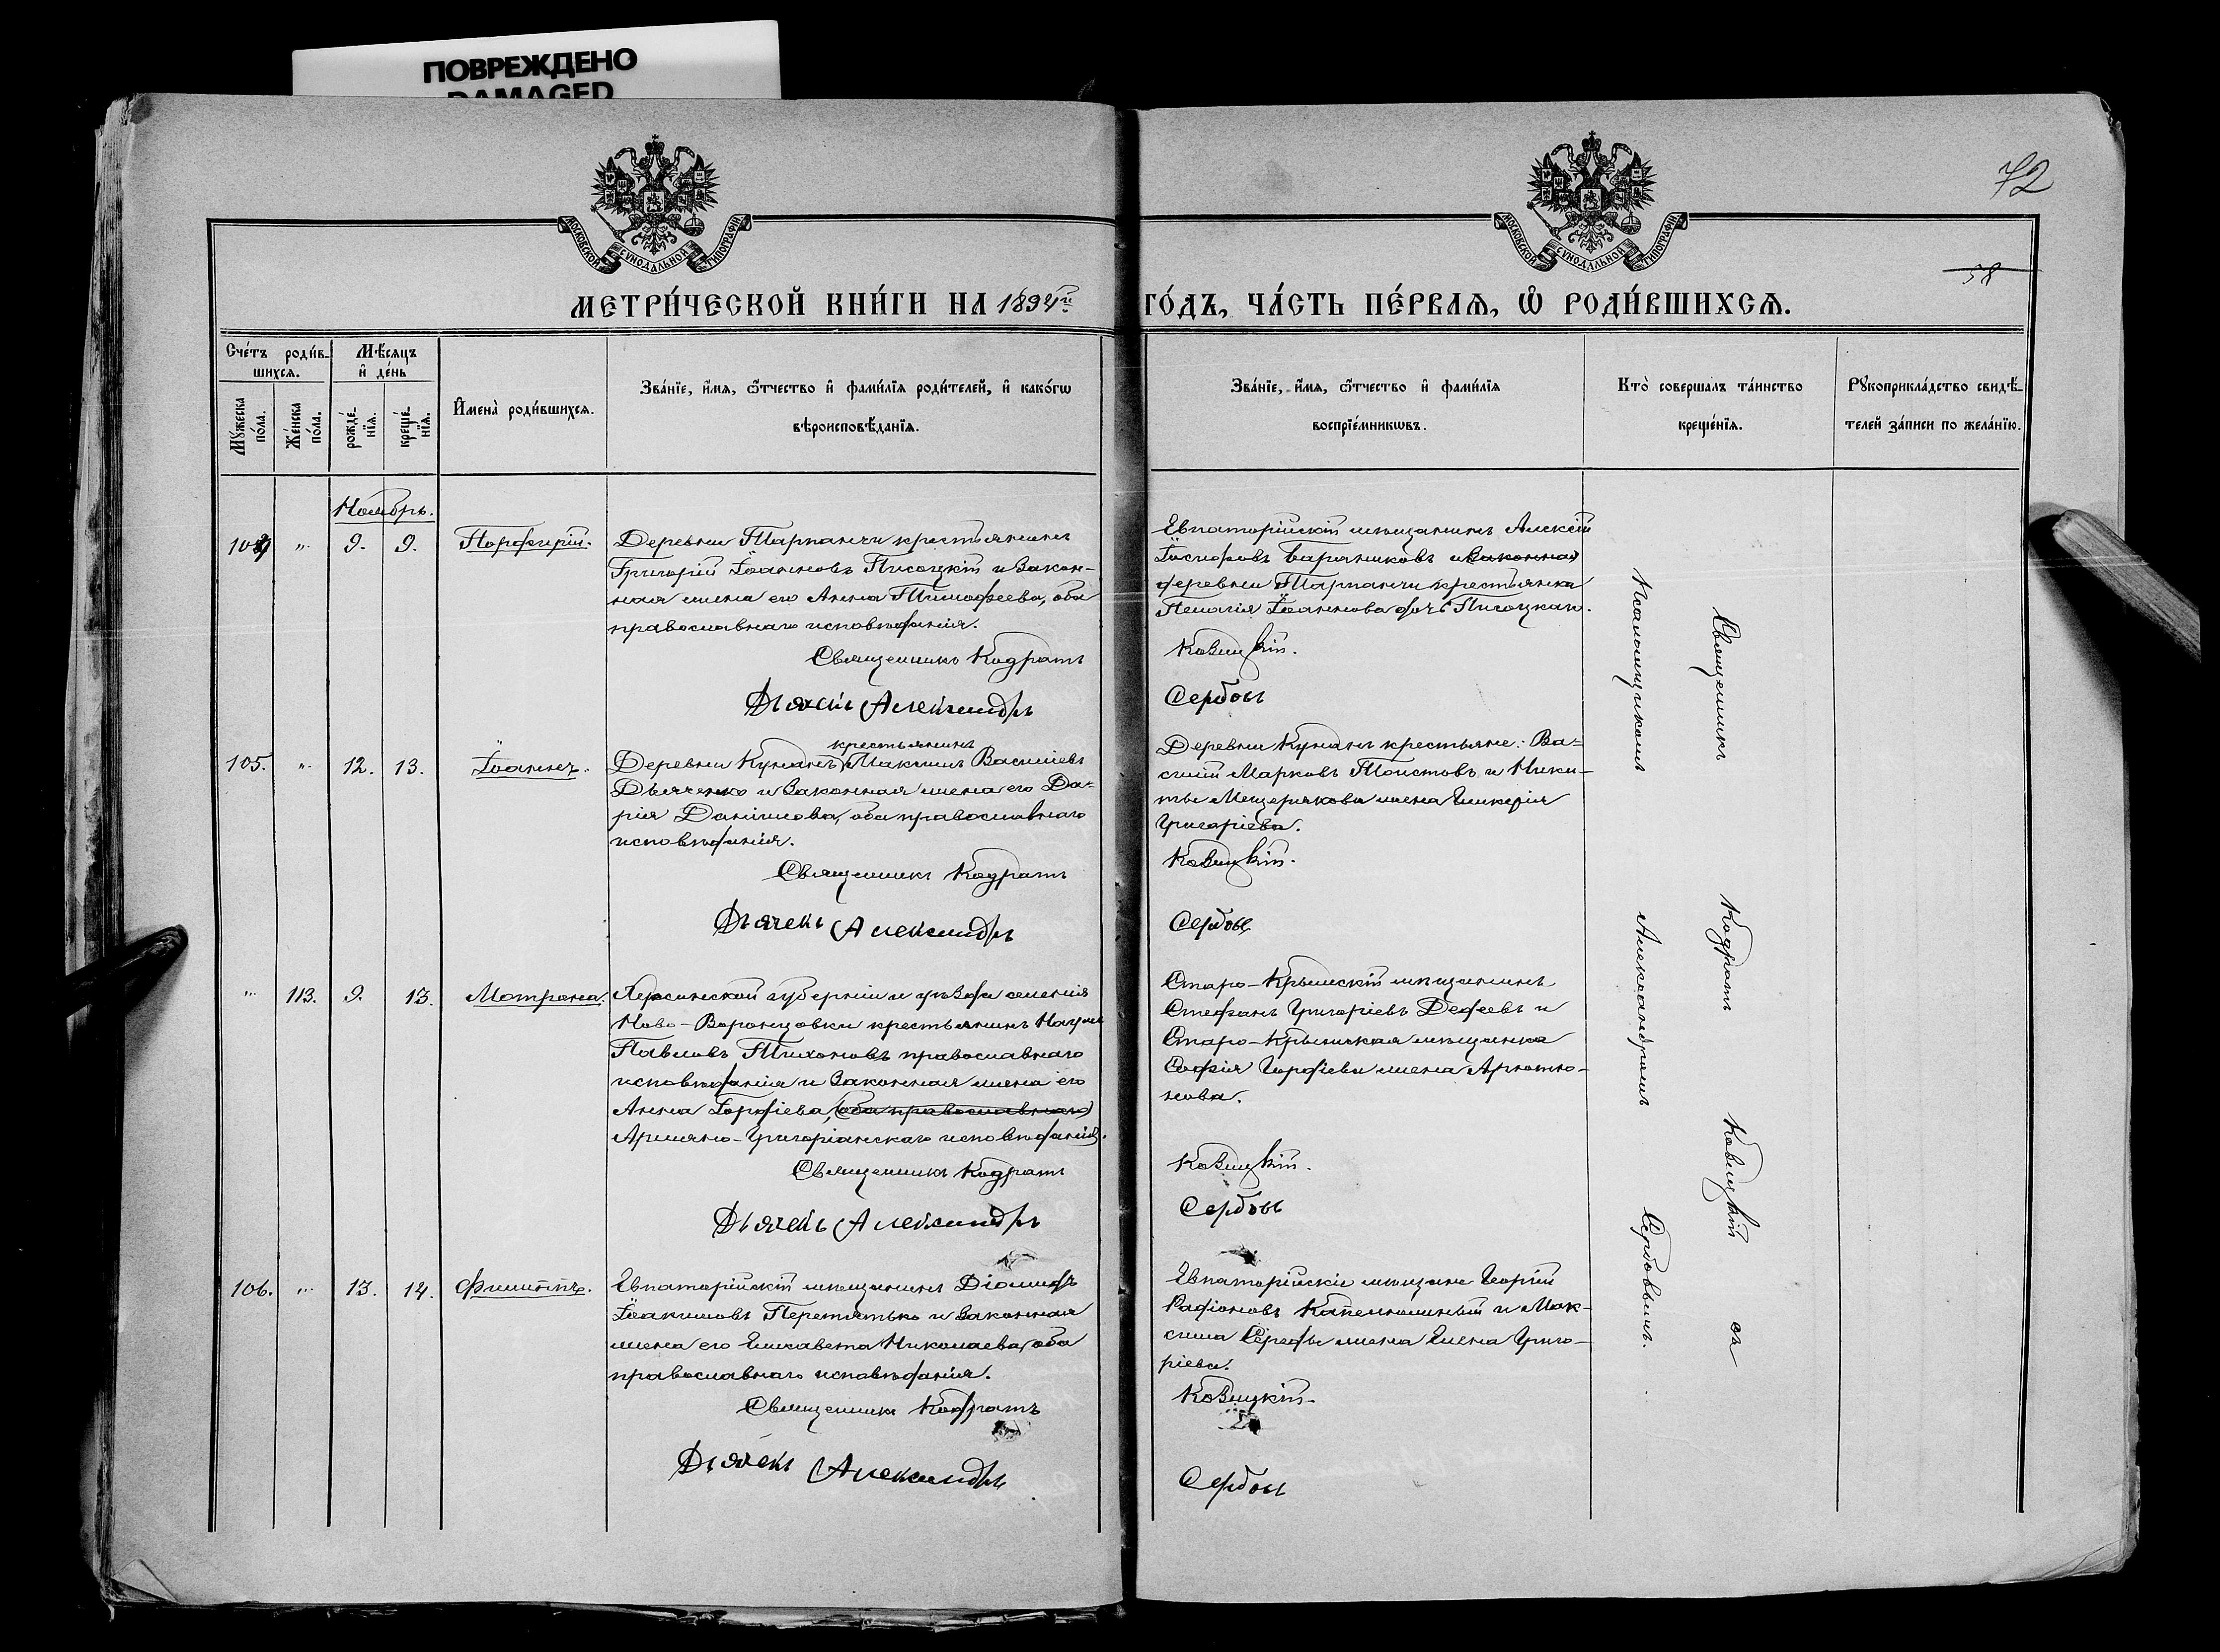 ПОВРЕЖДЕНО
DAMAGED
МОСКОВСКОЙ СѴНОДАЛЬНОЙ ТИПОГРАФІИ
МОСКОВСКОЙ СѴНОДАЛЬНОЙ ТИПОГРАФІИ
72
58
МЕТРИ́ЧЕСКОЙ КНИ́ГИ НА 1894й ГО́ДЪ, ЧА́СТЬ ПЕ́РВАЯ, Ѡ РОДИ́ВШИХСЯ.
Сче́тъ роди́в-
шихся.
Мꙋ́жеска по́ла.
Же́нска по́ла.
Мѣ́сяцъ
и҆ де́нь
рожде́-
нїя.
креще́-
нїя.
И҆мена̀ роди́вшихся.
Зва́нїе, и҆́мя, ѻ҆́тчество и҆ фами́лїя роди́телей, и҆ како́гѡ
вѣроисповѣ́данїя.
Зва́нїе, и҆́мя, ѻ҆́тчество и҆ фами́лїя
воспрїе́мникѡвъ.
Кто̀ соверша́лъ та́инство
креще́нїя.
Рꙋкоприкла́дство свидѣ́-
телей за́писи по жела́нїю.
Ноябрь.
9. 9. Порфирій.
Деревни Тарпанчи крестьянинъ
Григорій Іоанновъ Писоцкій и закон-
ная жена его Анна Тимофеева, оба
православнаго исповѣданія.
Священникъ Кодратъ
Дьячекъ Александръ
Евпаторійскій мѣщанинъ Алексій
Іосифовъ Баранниковъ и законная
деревни Тарпанчи крестьянка
Пелагія Іоаннова дочь Писоцкаго.
Ковицкій.
Сербовъ
105. " 12. 13. Іоаннъ.
крестьянинъ
Деревни Кунанъ Максимъ Васильевъ
Дьяченко и законная жена его Да-
рія Даниилова, оба православнаго
исповѣданія.
Священникъ Кодратъ
Дьячекъ Александръ
Деревни Кунанъ крестьяне: Ва-
силій Марковъ Толстовъ и Ники-
ты Мещерякова жена Гликерія
Григоріева.
Ковицкій.
Сербовъ
" 113. 9. 13. Матрона.
Херсонской губерніи и уѣзда селенія
Ново-Воронцовки крестьянинъ Наумъ
Павловъ Тихоновъ православнаго
исповѣданія и законная жена его
Анна Гордіева, (оба православнаго)
Армяно-Григоріанскаго исповѣданія.
Священникъ Кодратъ
Дьячекъ Александръ
Старо-Крымскій мѣщанинъ
Стефанъ Григоріевъ Дефеевъ и
Старо-Крымская мѣщанка
Софія Гордіева жена Арютю-
нова.
Ковицкій.
Сербовъ
106. " 13. 14. Филиппъ.
Евпаторійскій мѣщанинъ Діомидъ
Іоакимовъ Перетятько и законная
жена его Елисавета Николаева, оба
православнаго исповѣданія.
Священникъ Кодратъ
Дьячекъ Александръ
Евпаторійскіе мѣщане Георгій
Радіоновъ и Мак-
сима Середы жена Елена Григо-
ріева.
Ковицкій.
Сербовъ
Священникъ Кодратъ Ковицкій съ
Псаломщикомъ Александромъ Сербовымъ.